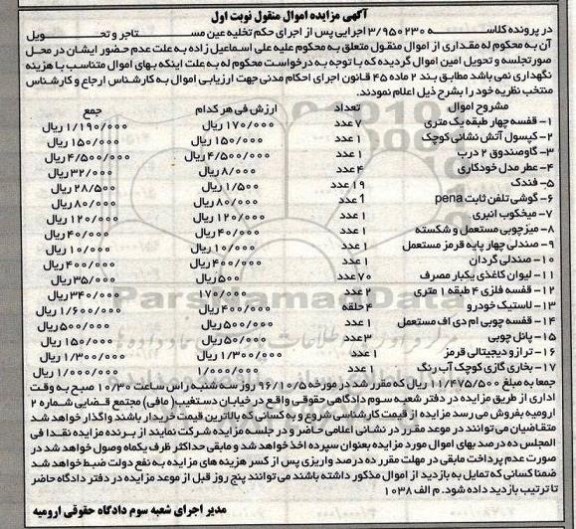 آگهی مزایده اموال منقول نوبت اول
در پرونده کلاسه ۳/۹۵۰۲۳۰ اجرایی پس از اجرای حکم تخلیه عین مستاجر و تحویل
آن به محکوم له مقداری از اموال منقول متعلق به محکوم علیه علی اسماعیل زاده به علت عدم حضور ایشان در محل
صورتجلسه و تحویل امین اموال گردیده که با توجه به درخواست محکوم له به علت اینکه بهای اموال متناسب با هزینه
نگهداری نمی باشد مطابق بند ۲ ماده ۴۵ قانون اجرای احکام مدنی جهت ارزیابی اموال به کارشناس ارجاع و کارشناس
منتخب نظریه خود را بشرح ذیل اعلام نمودند.
مشروح اموال تعداد ارزش فی هر کدام جمع
۱- قفسه چهار طبقه یک متری ۷ عدد ۱۷۰/۰۰۰ ریال ۱/۱۹۰/۰۰۰ ریال
۲- کپسول آتش نشانی کوچک ۱ عدد ۱۵۰/۰۰۰ ریال ۱۵۰/۰۰۰ ریال
۳- گاوصندوق ۲ درب ۱ عدد ۴/۵۰۰/۰۰۰ ریال ۴/۵۰۰/۰۰۰ ریال
۴- عطر مدل خودکاری ۴ عدد ۸/۰۰۰ ریال ۳۲/۰۰۰ ریال
۵- فندک ۱۹ عدد ۱/۵۰۰ ریال ۲۸/۵۰۰ ریال
۶- گوشی تلفن ثابت pena ۱ عدد ۸۰/۰۰۰ ریال ۸۰/۰۰۰ ریال
۷- میخکوب انبری ۱ عدد ۱۲۰/۰۰۰ ریال ۱۲۰/۰۰۰ ریال
۸- میز چوبی مستعمل و شکسته ۱ عدد ۴۰/۰۰۰ ریال ۴۰/۰۰۰ ریال
۹- صندلی چهار پایه قرمز مستعمل ۱ عدد ۱۰/۰۰۰ ریال ۱۰/۰۰۰ ریال
۱۰- صندلی گردان ۱ عدد ۴۰۰/۰۰۰ ریال ۴۰۰/۰۰۰ ریال
۱۱- لیوان کاغذی یکبار مصرف ۷۰ عدد ۵۰۰ ریال ۳۵/۰۰۰ ریال
۱۲- قفسه فلزی ۴ طبقه ۱ متری ۲ عدد ۱۷۰/۰۰۰ ۳۴۰/۰۰۰ ریال
۱۳- لاستیک خودرو ۴ حلقه ۴۰۰/۰۰۰ ریال ۱/۶۰۰/۰۰۰ ریال
۱۴- قفسه چوبی ام دی اف مستعمل ۱ عدد ۵۰۰/۰۰۰ ریال ۵۰۰/۰۰۰ ریال
۱۵- پانل چوبی ۳ عدد ۵۰/۰۰۰ ریال ۱۵۰/۰۰۰ ریال
۱۶- ترازو دیجیتالی قرمز ۱ عدد ۱/۳۰۰/۰۰۰ ریال ۱/۳۰۰/۰۰۰ ریال
۱۷- بخاری گازی کوچک آب رنگ ۱ عدد ۱/۰۰۰/۰۰۰ ریال ۱/۰۰۰/۰۰۰ ریال
جمعا به مبلغ ۱۱/۴۷۵/۵۰۰ ریال که مقرر شد در مورخه ۹۶/۱۰/۵ روز سه شنبه راس ساعت ۱۰/۳۰ صبح به وقت
اداری از طریق مزایده در دفتر شعبه سوم دادگاهی حقوقی واقع در خیابان دستغیب (مافی) مجتمع قضایی شماره ۲
ارومیه بفروش می رسد مزایده از قیمت کارشناسی شروع و به کسانی که بالاترین قیمت خریدار باشند واگذار خواهد شد
متقاضیان می توانند در موعد مقرر در نشانی اعلامی حاضر و در جلسه مزایده شرکت نمایند از برنده مزایده نقدا فی
المجلس ده درصد بهای اموال مورد مزایده بعنوان سپرده اخذ خواهد شد و مابقی حداکثر ظرف یکماه وصول خواهد شد در
صورت عدم پرداخت مابقی در مهلت مقرر ده درصد واریزی پس از کسر هزینه های مزایده به نفع دولت ضبط خواهد شد
ضمنا کسانی که تمایل به بازدید از اموال مذکور داشته باشند می توانند پنج روز قبل از موعد مزایده در دفتر دادگاه حاضر
تا ترتیب بازدید داده شود. م الف ۱۰۳۸
مدیر اجرای شعبه سوم دادگاه حقوقی ارومیه
ParsNamadData